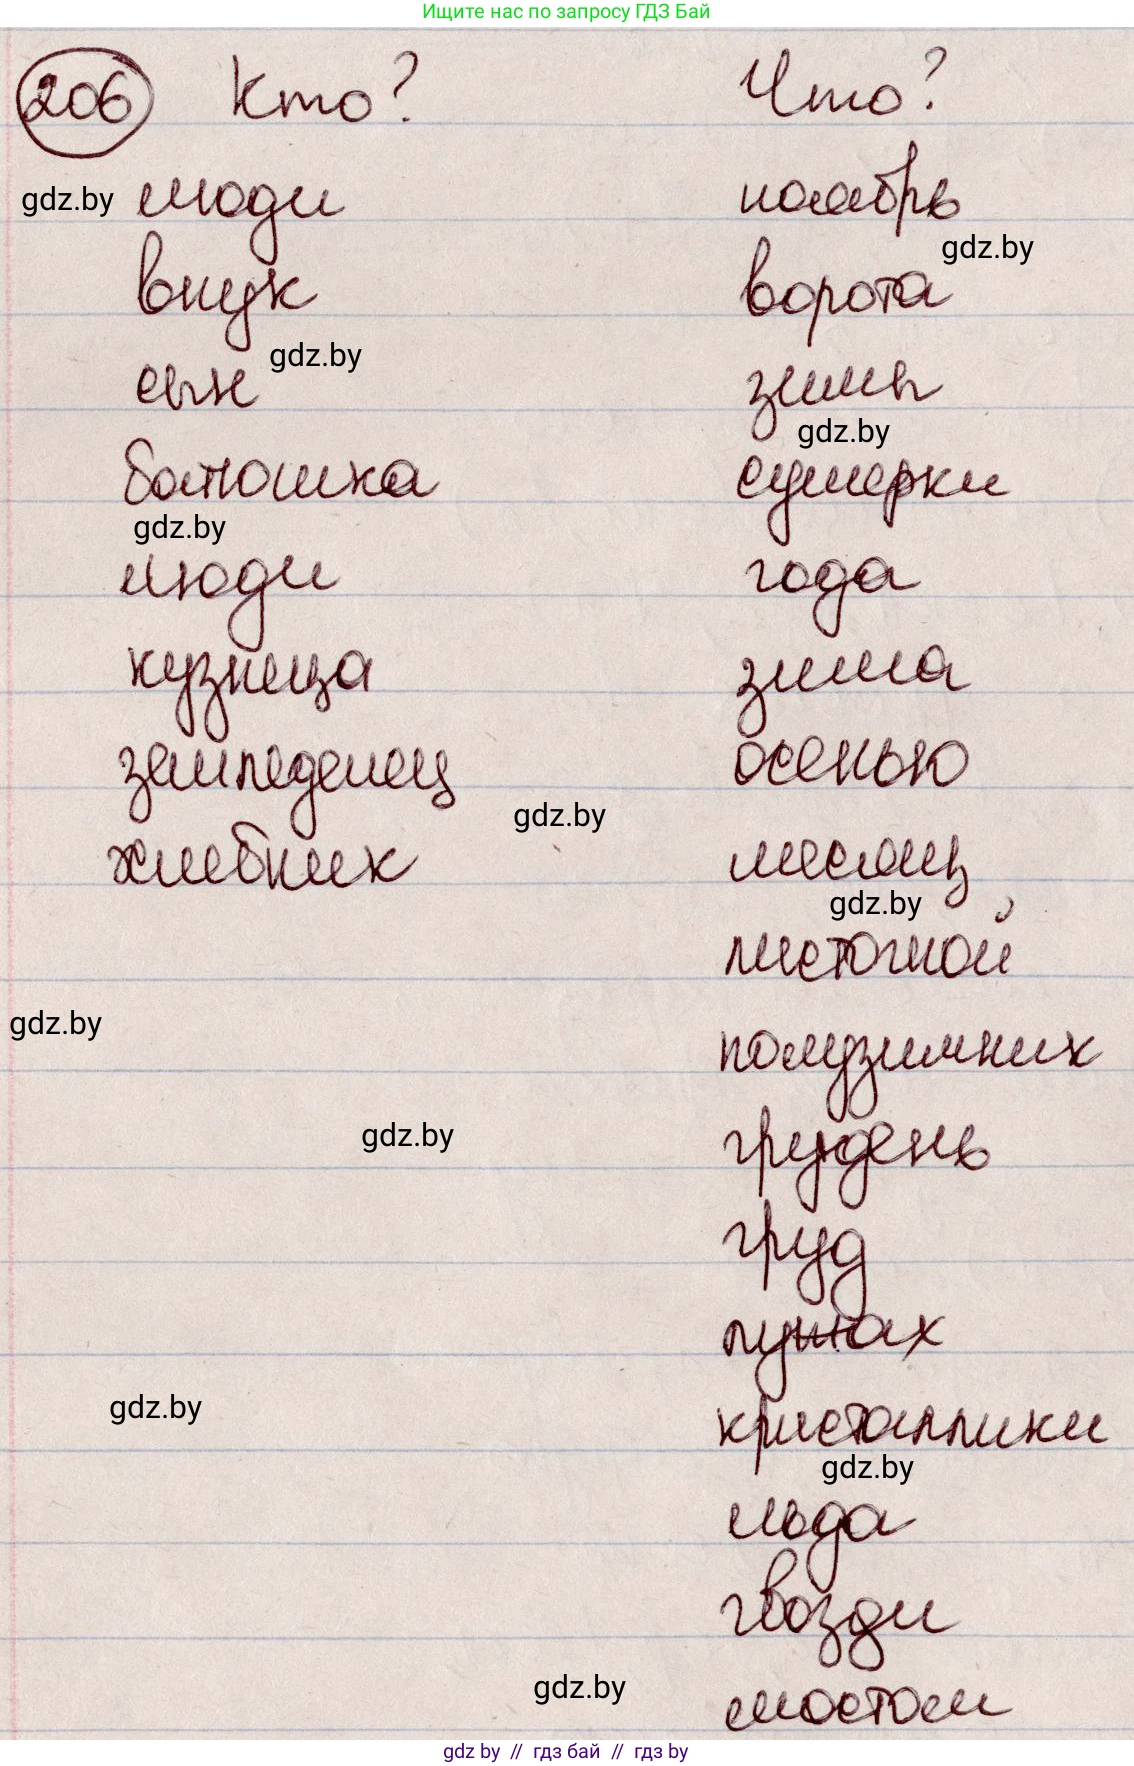 Ищите нас по запросу ГДЗ Бай
206 Кто? Что?
gdz.by люди ноябрь
gdz.by
внук ворота
gdz.by
сын зимы
gdz.by
батюшка сумерки
gdz.by
люди года
кузница зима
земледелец осенью
gdz.by
хлебник месяц
gdz.by
листогной
gdz.by
полузимник
gdz.by
грудень
груд
лужах
gdz.by
кристаллики
gdz.by
льда
гвозди
gdz.by
мостом
gdz by // гдз бай // гдз by